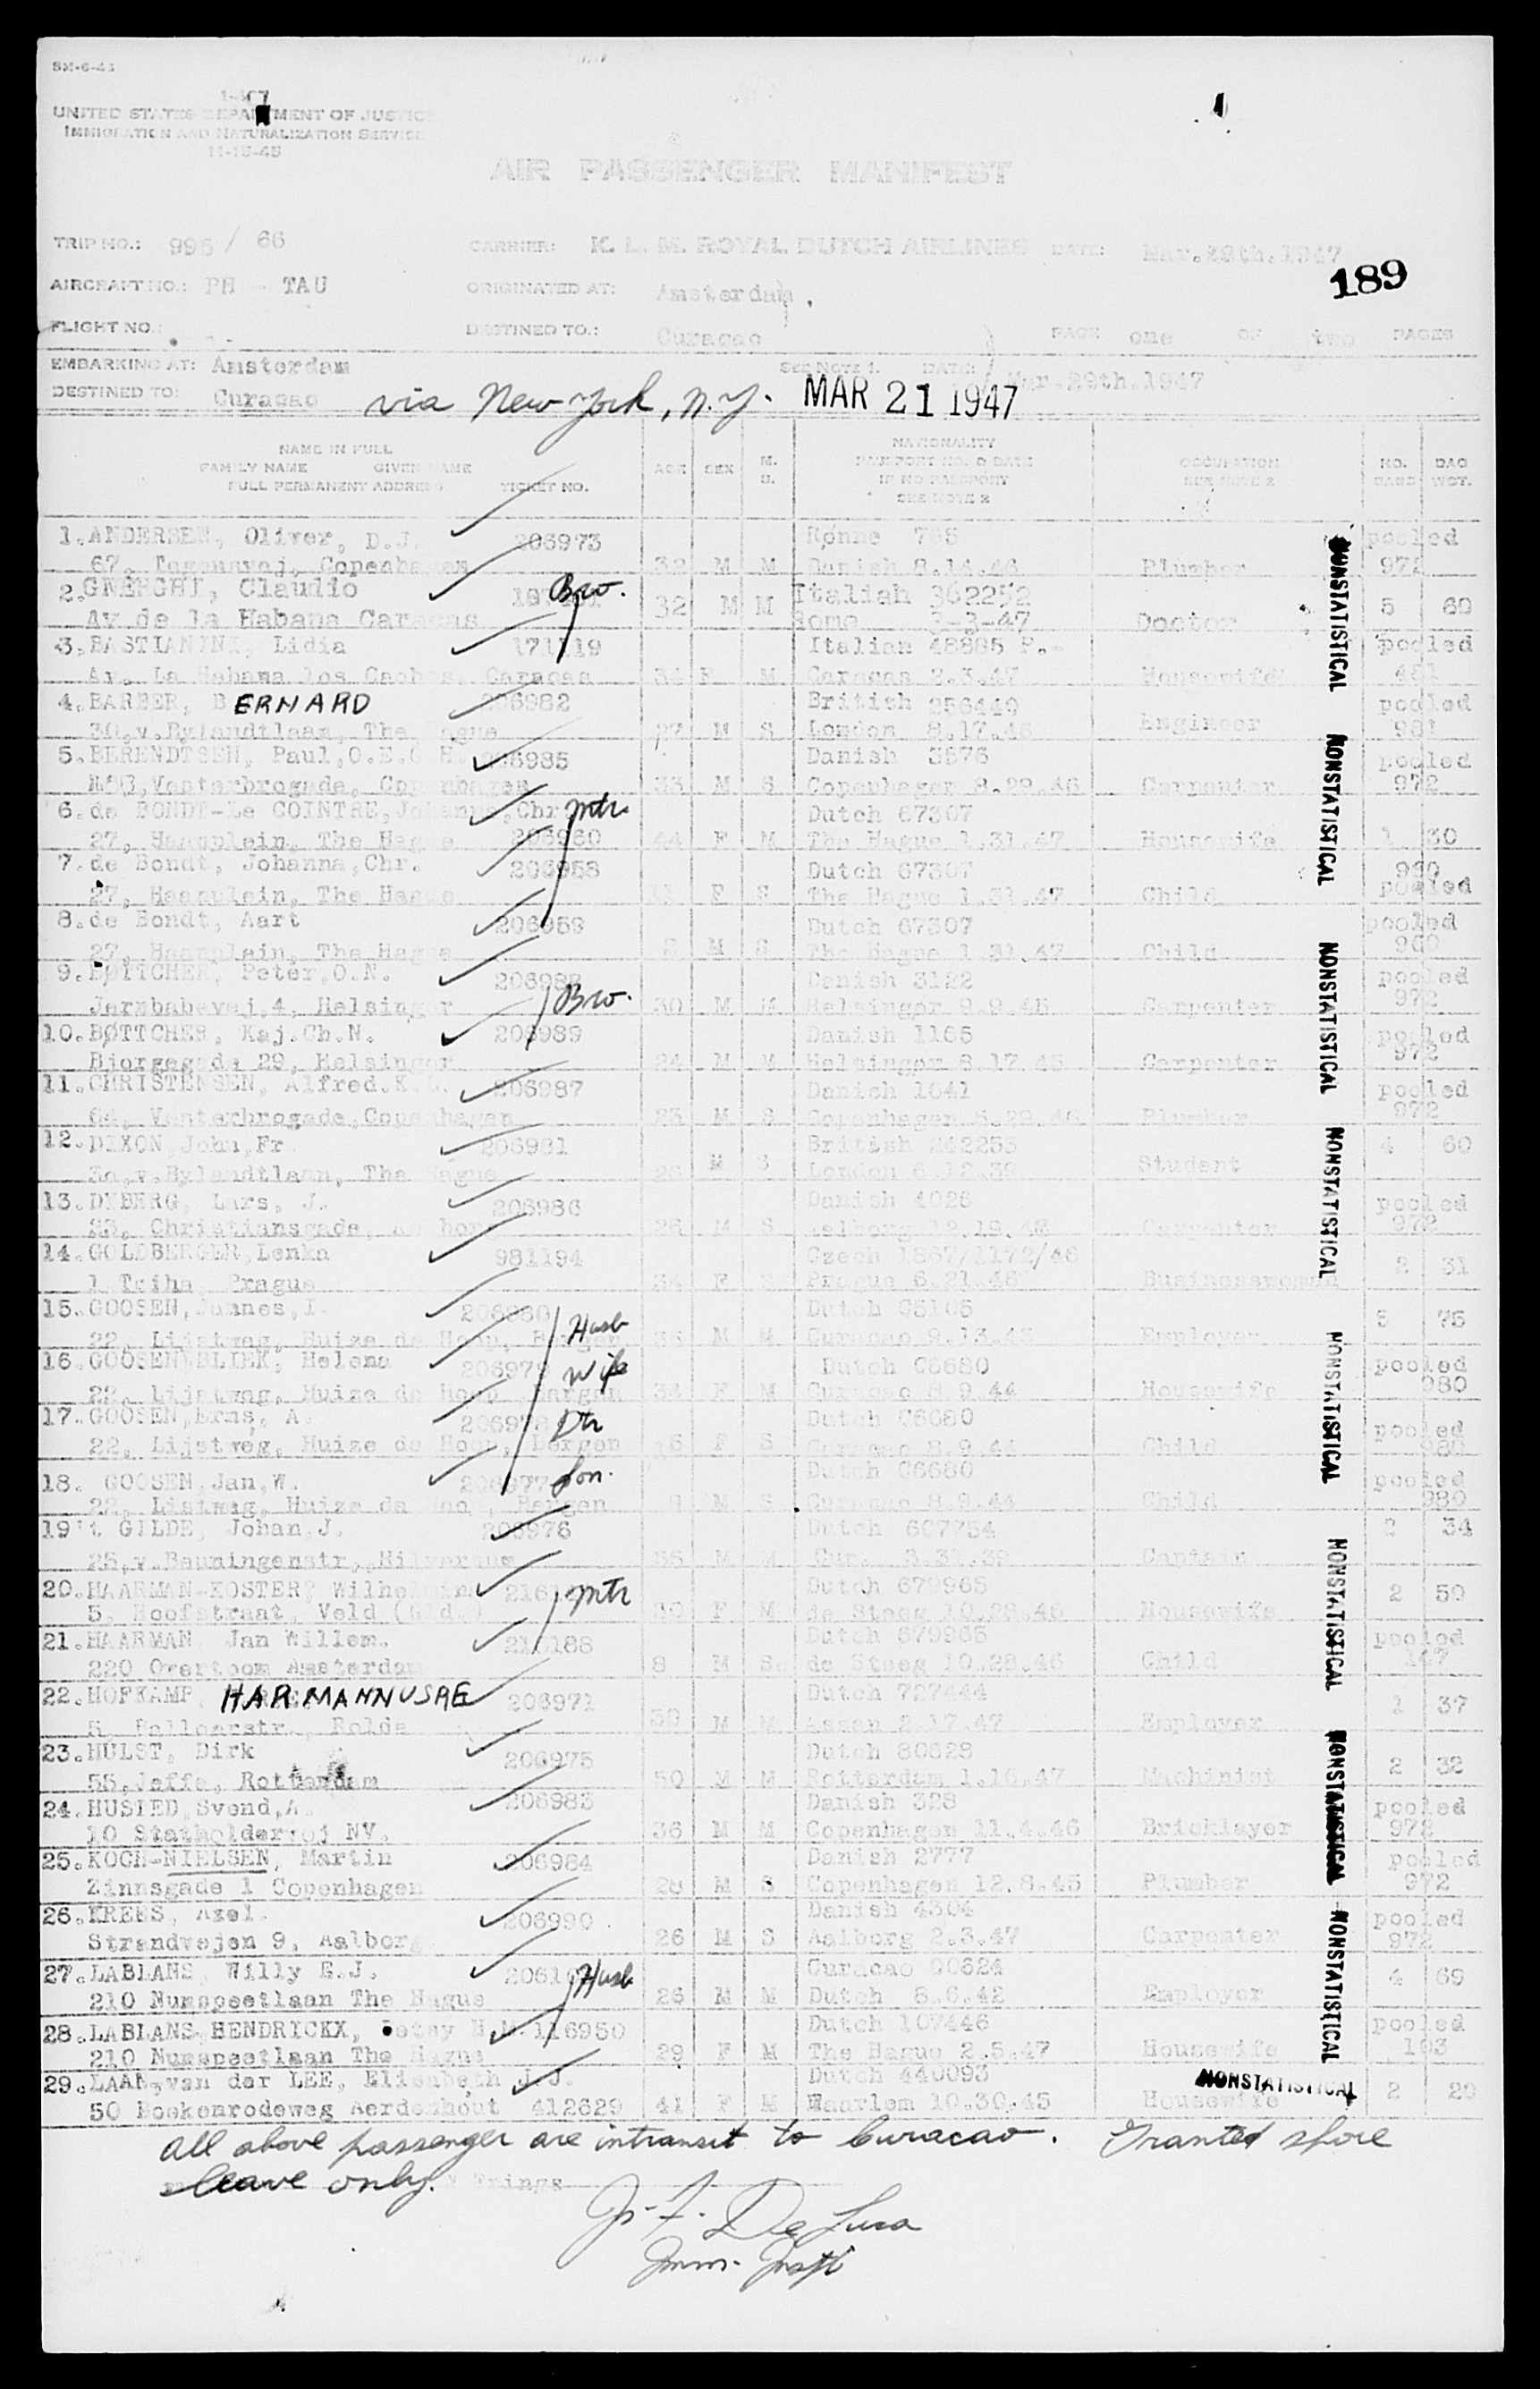 1-407
UNITED STATES DEPARTMENT OF JUSTICE
IMMIGRATION AND NATURALIZATION SERVICE
11-15-45
AIR PASSENGER MANIFEST
TRIP NO.: 995 / 66 CARRIER: K. L. M. ROYAL DUTCH AIRLINES DATE: Mar.29th.1947
189
AIRCRAFT NO.: PH - TAU ORIGINATED AT: Amsterdam.
FLIGHT NO. DESTINED TO.: Curacao PAGE one OF two PAGES
EMBARKING AT: Amsterdam SEE NOTE 1. DATE: Mar.29th.1947
DESTINED TO: Curacao via New York, N.Y. MAR 21 1947
NAME IN FULL
FAMILY NAME GIVEN NAME
FULL PERMANENT ADDRESS. TICKET NO. AGE SEX M. S. NATIONALITY PASSPORT NO. & DATE IF NO PASSPORT SEE NOTE 2 OCCUPATION SEE NOTE 2 NO. BAGS BAG WGT.
1.ANDERSEN, Oliver, D.J. 206973 Rønne 785 pooled
67, Copenhagen 32 M M Danish 8.14.46 Plumber 972
2.GNERGHI, Claudio Bro. 32 M M Italian 362252 5 60
Av de la Habana Caracas Rome 3-3-47 Doctor
3.BASTIANINI, Lidia 171119 Italian 48885 P.- pooled
Av. La Habana los Caobos, Caracas 34 F M Caracas 2.3.47 Housewife 461
4.BARBER, BERNARD 206982 British 256449 pooled
30,v.Bylandtlaan, The Hague 27 M S London 8.17.45 Engineer 981
5.BERENDTSEN, Paul,O.E.C H. 206985 Danish 3576 pooled
Vesterbrogade, Copenhagen 33 M S Copenhagen 8.29.46 Carpenter 972
6.de BONDT-Le COINTRE,Johanna,Chr Mtr. Dutch 67307
27, Haanplein, The Hague 206960 44 F M The Hague 1.31.47 Housewife 1 30
7.de Bondt, Johanna,Chr. 206958 Dutch 67307 960
27, Haanplein, The Hague F S The Hague 1.31.47 Child pooled
8.de Bondt, Aart 206959 Dutch 67307 pooled
27, Haanplein, The Hague 8 M S The Hague 1.31.47 Child 960
9.BØTTCHER, Peter,O.N. 206988 Danish 3122 pooled
Jernbabevej,4, Helsingør Bro. 30 M M Helsingør 9.9.45 Carpenter 972
10.BØTTCHER, Kaj.Ch.N. 206989 Danish 1165 pooled
Bjergegade 29, Helsingør 24 M M Helsingør 8.17.45 Carpenter 972
11.CHRISTENSEN, Alfred.K.L. 206987 Danish 1641 pooled
64, Vesterbrogade,Copenhagen 23 M S Copenhagen 5.29.46 Plumber 972
12.DIXON,John,Fr 206981 British 242255 4 60
30,v.Bylandtlaan, The Hague M S London 6.12.39 Student
13.DYBERG, Lars, J. 206986 Danish 4026 pooled
23, Christiansgade, Aalborg 26 M S Aalborg 12.19.46 Carpenter 972
14.GOLDBERGER,Lenka 981194 Czech 1867/1172/46 2 31
1 Prague 34 F S Prague 6.21.46 Businesswoman
15.GOOSEN,Jannes,I. 206980 Husb Dutch C6105 5 75
22, Lijstweg, Huize de Hoop, Bergen 36 M M Curacao 9.13.45 Employer
16.GOOSEN-BLIEK, Helena 206979 Wife Dutch C6680 pooled
22, Lijstweg, Huize de Hoop, Bergen 34 F M Curacao 8.9.44 Housewife 980
17.GOOSEN,Erna, A. 206978 Dtr Dutch C6680 pooled
22, Lijstweg, Huize de Hoop, Bergen F S Curacao 8.9.44 Child 980
18. GOOSEN,Jan,W. 206977 Son. Dutch C6680 pooled
22, Listweg, Huize de Hoop, Bergen M S Curacao 8.9.44 Child 980
19't GILDE, Johan J. 206976 Dutch 607754 2 34
25,v.Bauningenstr,,Hilversum 55 M M 3.31.39 Captain
20.HAARMAN-KOSTER, Wilhelmina Mtr Dutch 679965 2 50
5, Hoofstraat, Veld (Gld.) 39 F M de Steeg 10.28.46 Housewife
21.HAARMAN Jan Willem. 216188 Dutch 679965 pooled
220 Overtoom Amsterdam 8 M S. de Steeg 10.28.46 Child 187
22.HOFKAMP, HARMANNUSRE 206971 Dutch 727444 1 37
Rolde 39 M M Assen 2.17.47 Employer
23.HULST, Dirk 206975 Dutch 80628 2 32
55,Joffe, Rotterdam 50 M M Rotterdam 1.16.47 Machinist
24.HUSTED,Svend,A. 206983 Danish 328 pooled
10 Statholdervej NV. 36 M M Copenhagen 11.4.46 Bricklayer 972
25.KOCH-NIELSEN, Martin 206984 Danish 2777 pooled
Zinnsgade 1 Copenhagen 28 M S Copenhagen 12.8.45 Plumber 972
26.KREBS, Axel. 206990 Danish 4304 pooled
Strandvejen 9, Aalborg 26 M S Aalborg 2.3.47 Carpenter 972
27.LABLANS, Willy E.J. Husb Curacao 00624 4 69
210 Nunspeetlaan The Hague 26 M M Dutch 8.6.42 Employer
28.LABLANS HENDRICKX, Betsy H.M. 116950 Dutch 107446 pooled
210 Nunspeetlaan The Hague 29 F M The Hague 2.5.47 Housewife 103
29.LAAN,van der LEE, Elisabeth J.J. Dutch 440093 2 20
50 Boekenrodeweg Aerdenhout 412629 41 F M Haarlem 10.30.45 Housewife
NONSTATISTICAL
NONSTATISTICAL
NONSTATISTICAL
NONSTATISTICAL
NONSTATISTICAL
NONSTATISTICAL
NONSTATISTICAL
NONSTATISTICAL
NONSTATISTICAL
All above passenger are intransit to Curacao. Granted shore
leave only.
De Luca
Imm. Insp